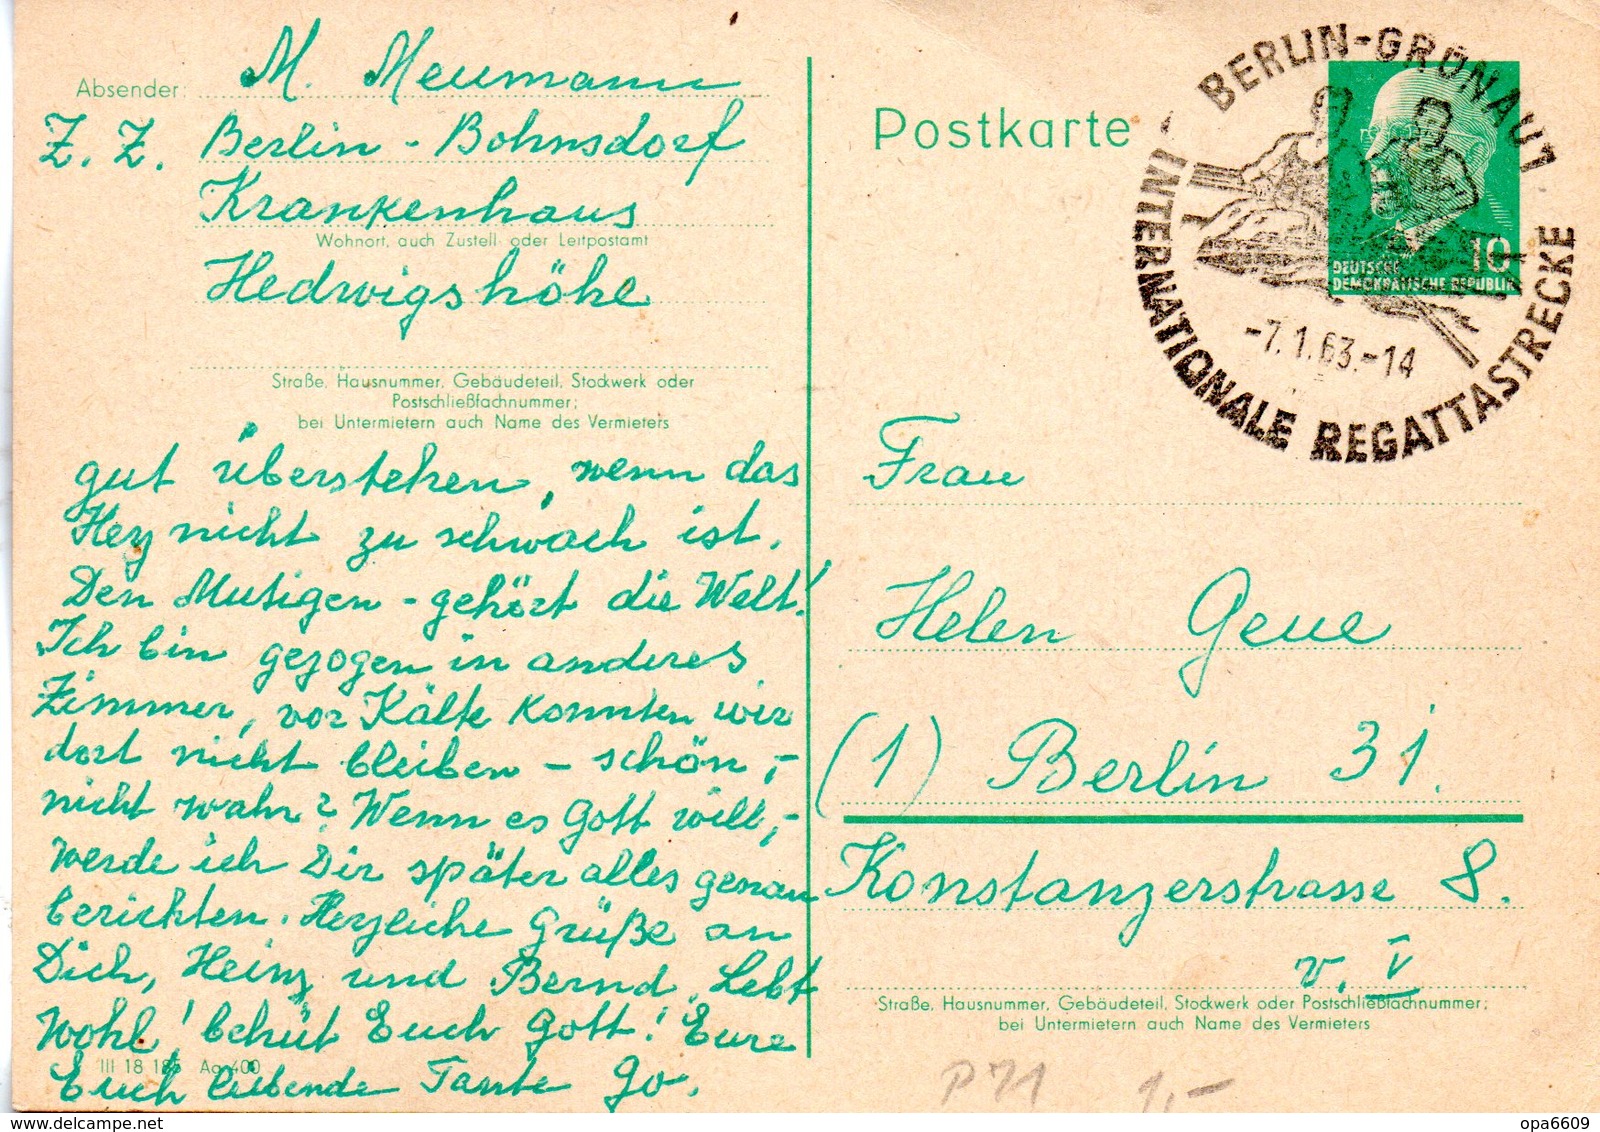 Absender: M. Meumann
Z. Z. Berlin - Bohnsdorf
Krankenhaus
Wohnort, auch Zustell- oder Leitpostamt
Hedwigshöhe
Straße, Hausnummer, Gebäudeteil, Stockwerk oder
Postschließfachnummer;
bei Untermietern auch Name des Vermieters
gut überstehen, wenn das
Herz nicht zu schwach ist.
Den Mutigen - gehört die Welt!
Ich bin gezogen in anderes
Zimmer, vor Kälte konnten wir
dort nicht bleiben - schön,-
nicht wahr? Wenn es Gott will,-
werde ich Dir später alles genau
berichten. Herzliche Grüße an
Dich, Heinz und Bernd. Lebt
wohl! behüt Euch Gott! Eure
III 18 185 Ag 400
Euch liebende Tante Jo.
Postkarte
BERLIN-GRÜNAU 1
INTERNATIONALE REGATTASTRECKE
-7.1.63.-14
10
DEUTSCHE
DEMOKRATISCHE REPUBLIK
Frau
Helen Geue
(1) Berlin 31.
Konstanzerstrasse 8.
v. V
Straße, Hausnummer, Gebäudeteil, Stockwerk oder Postschließfachnummer;
bei Untermietern auch Name des Vermieters
P71 1,-
opa6609